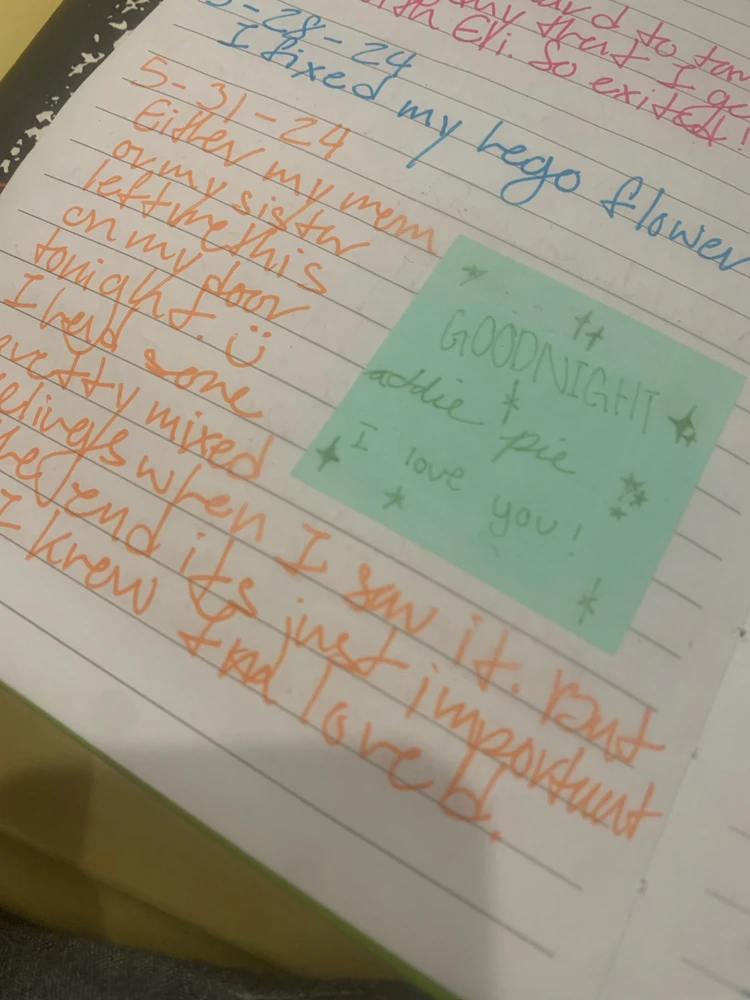 to
my that I
with Eli. So exited!
5-28-24
I fixed my Lego flower
5-31-24
Either my mom
or my sister
left me this
on my door
tonight. ü
I had some
pretty mixed
feelings when I saw it. But
the end it's just important
I know I'm loved.
GOODNIGHT
addie pie
I love you!